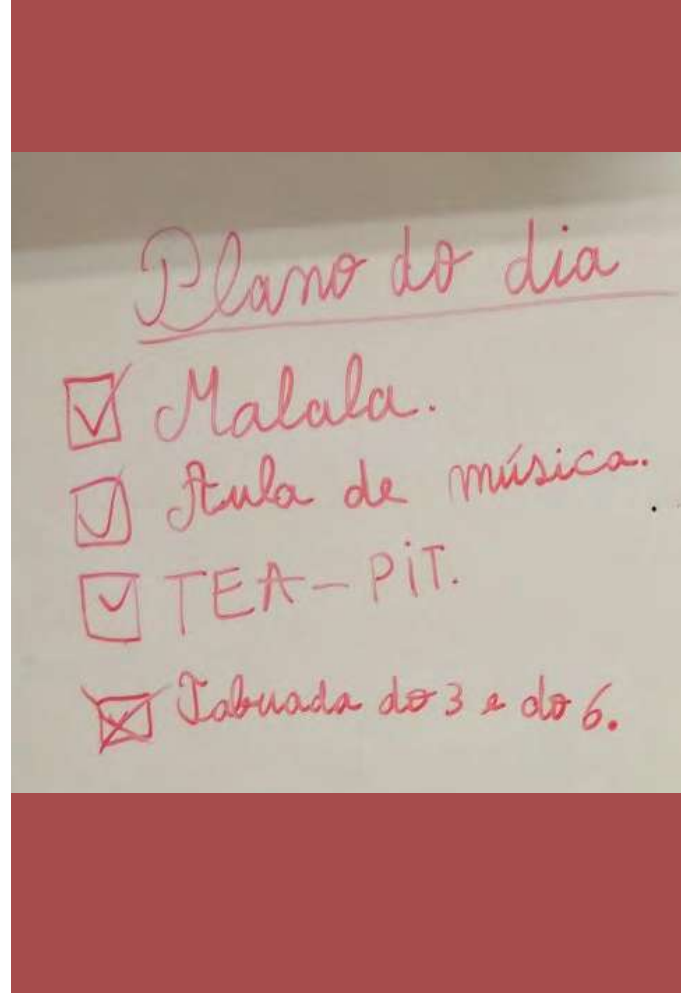 Plano do dia
Malala.
Aula de música.
TEA-PiT.
Tabuada do 3 e do 6.